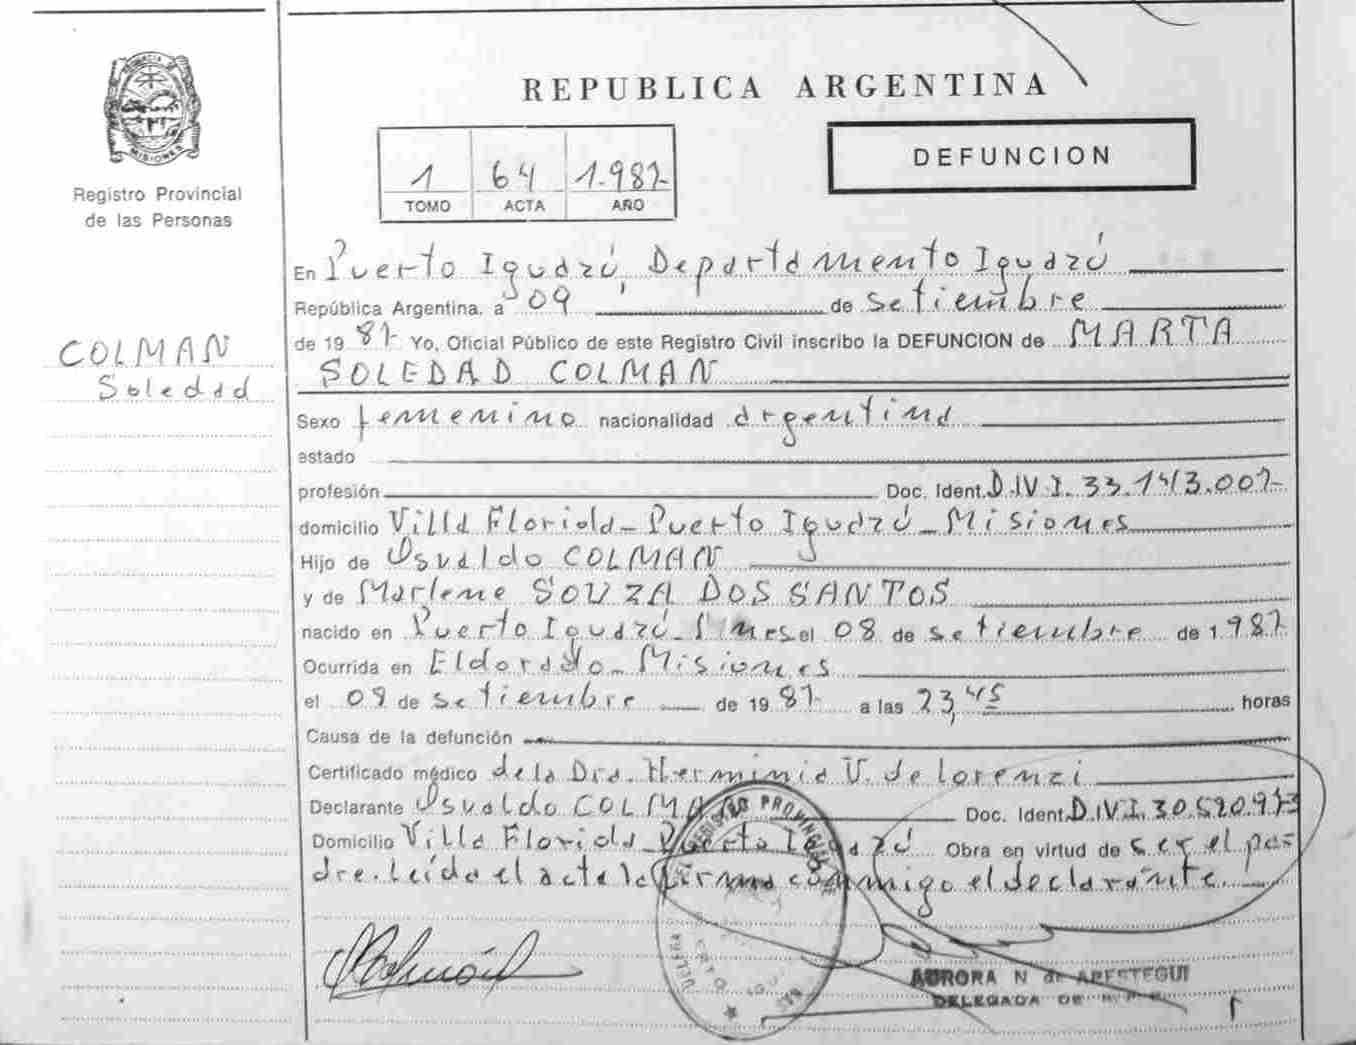 REPUBLICA ARGENTINA
PROVINCIA DE
MISIONES
Registro Provincial
de las Personas
1 64 1.987
TOMO ACTA AÑO
DEFUNCION
En Puerto Iguazú, Departamento Iguazú
República Argentina, a 09 de setiembre
de 1987 Yo, Oficial Público de este Registro Civil inscribo la DEFUNCION de MARTA
SOLEDAD COLMAN
COLMAN
Soledad
Sexo femenino nacionalidad argentina
estado
profesión Doc. Ident. D.N.I. 33.143.007
domicilio Villa Florida_Puerto Iguazú_Misiones
Hijo de Osvaldo COLMAN
y de Marlene SOUZA DOS SANTOS
nacido en Puerto Iguazú_Mnes el 08 de setiembre de 1987
Ocurrida en Eldorado_Misiones
el 09 de setiembre de 1987 a las 23,45 horas
Causa de la defunción
Certificado médico de la Dra. Herminia V. de Lorenzi
Declarante Osvaldo COLMAN Doc. Ident. D.N.I. 30.520.973
Domicilio Villa Florida_Puerto Iguazú Obra en virtud de ser el pa=
dre. Leída el acta la firma conmigo el declarante.
REGISTRO PROVINCIAL
AURORA N de ARESTEGUI
DELEGADA DE